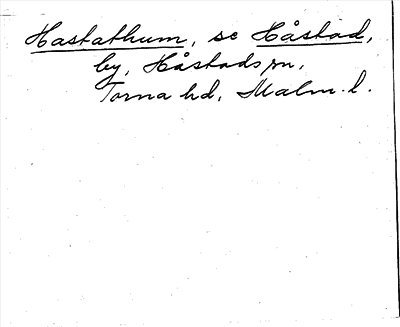 Hastathum, se Håstad,
by, Håstads sn,
Torna hd, Malm. l.